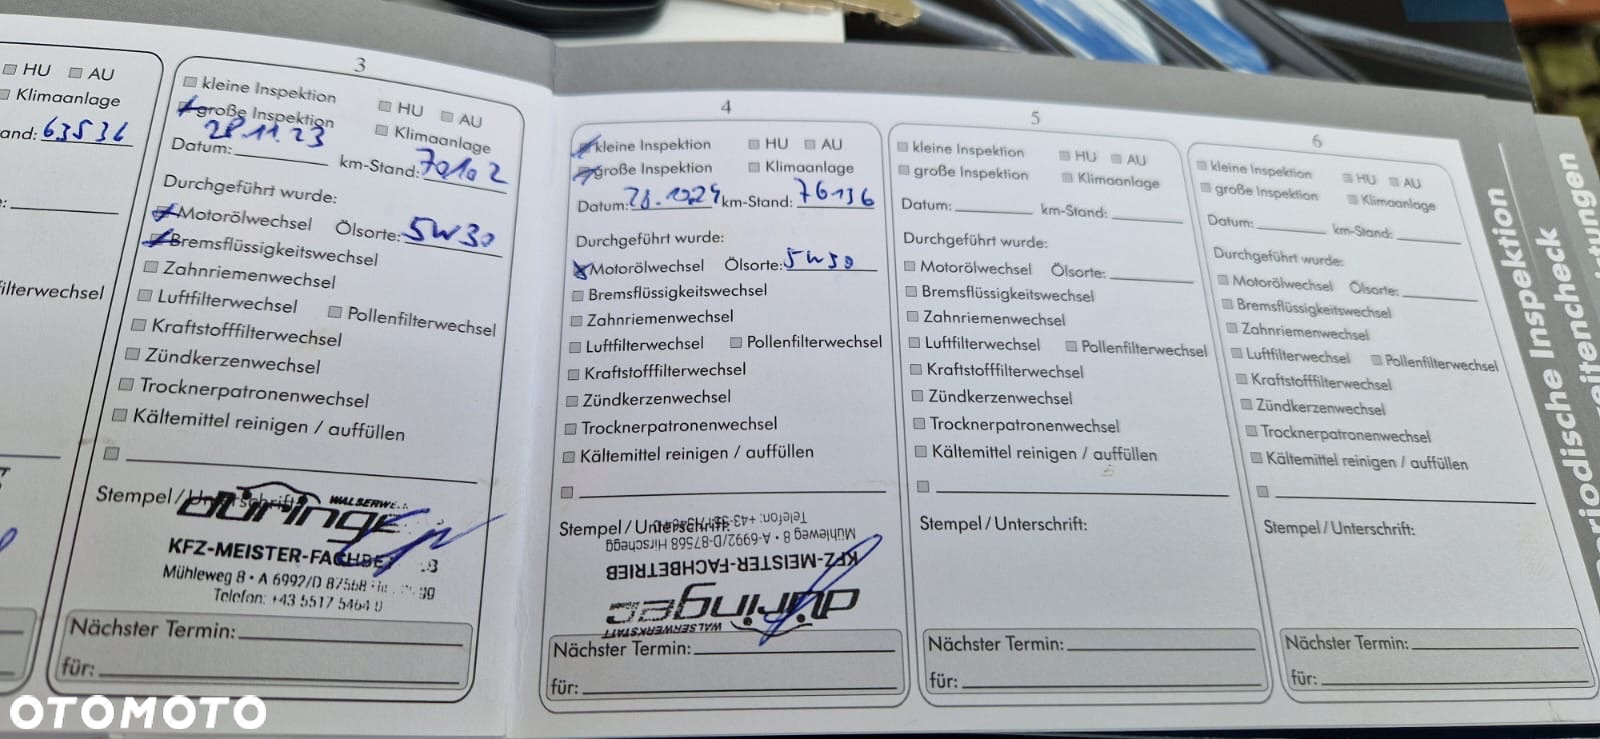 HU AU
Klimaanlage
and: 63536
filterwechsel
3
kleine Inspektion HU AU
große Inspektion Klimaanlage
Datum: 28.11.23 km-Stand: 70102
Durchgeführt wurde:
Motorölwechsel Ölsorte: 5W30
Bremsflüssigkeitswechsel
Zahnriemenwechsel
Luftfilterwechsel Pollenfilterwechsel
Kraftstofffilterwechsel
Zündkerzenwechsel
Trocknerpatronenwechsel
Kältemittel reinigen / auffüllen
Stempel / Unterschrift:
WALSERWE
düringe
KFZ-MEISTER-FACHBE
Mühleweg 8 • A 6992/D 87568
Telefon: +43 5517 5464 0
Nächster Termin:
für:
4
kleine Inspektion HU AU
große Inspektion Klimaanlage
Datum: km-Stand: 76136
Durchgeführt wurde:
Motorölwechsel Ölsorte: 5W30
Bremsflüssigkeitswechsel
Zahnriemenwechsel
Luftfilterwechsel Pollenfilterwechsel
Kraftstofffilterwechsel
Zündkerzenwechsel
Trocknerpatronenwechsel
Kältemittel reinigen / auffüllen
Stempel / Unterschrift:
WALSERWERKSTATT
düringer
KFZ-MEISTER-FACHBETRIEB
Mühleweg 8 • A-6992/D-87568 Hirschegg
Telefon:
Nächster Termin:
für:
5
kleine Inspektion HU AU
große Inspektion Klimaanlage
Datum: km-Stand:
Durchgeführt wurde:
Motorölwechsel Ölsorte:
Bremsflüssigkeitswechsel
Zahnriemenwechsel
Luftfilterwechsel Pollenfilterwechsel
Kraftstofffilterwechsel
Zündkerzenwechsel
Trocknerpatronenwechsel
Kältemittel reinigen / auffüllen
Stempel / Unterschrift:
Nächster Termin:
für:
6
kleine Inspektion HU AU
große Inspektion Klimaanlage
Datum: km-Stand:
Durchgeführt wurde:
Motorölwechsel Ölsorte:
Bremsflüssigkeitswechsel
Zahnriemenwechsel
Luftfilterwechsel Pollenfilterwechsel
Kraftstofffilterwechsel
Zündkerzenwechsel
Trocknerpatronenwechsel
Kältemittel reinigen / auffüllen
Stempel / Unterschrift:
Nächster Termin:
für:
Inspektion
riodische Inspektion
eitencheck
itungen
OTOMOTO